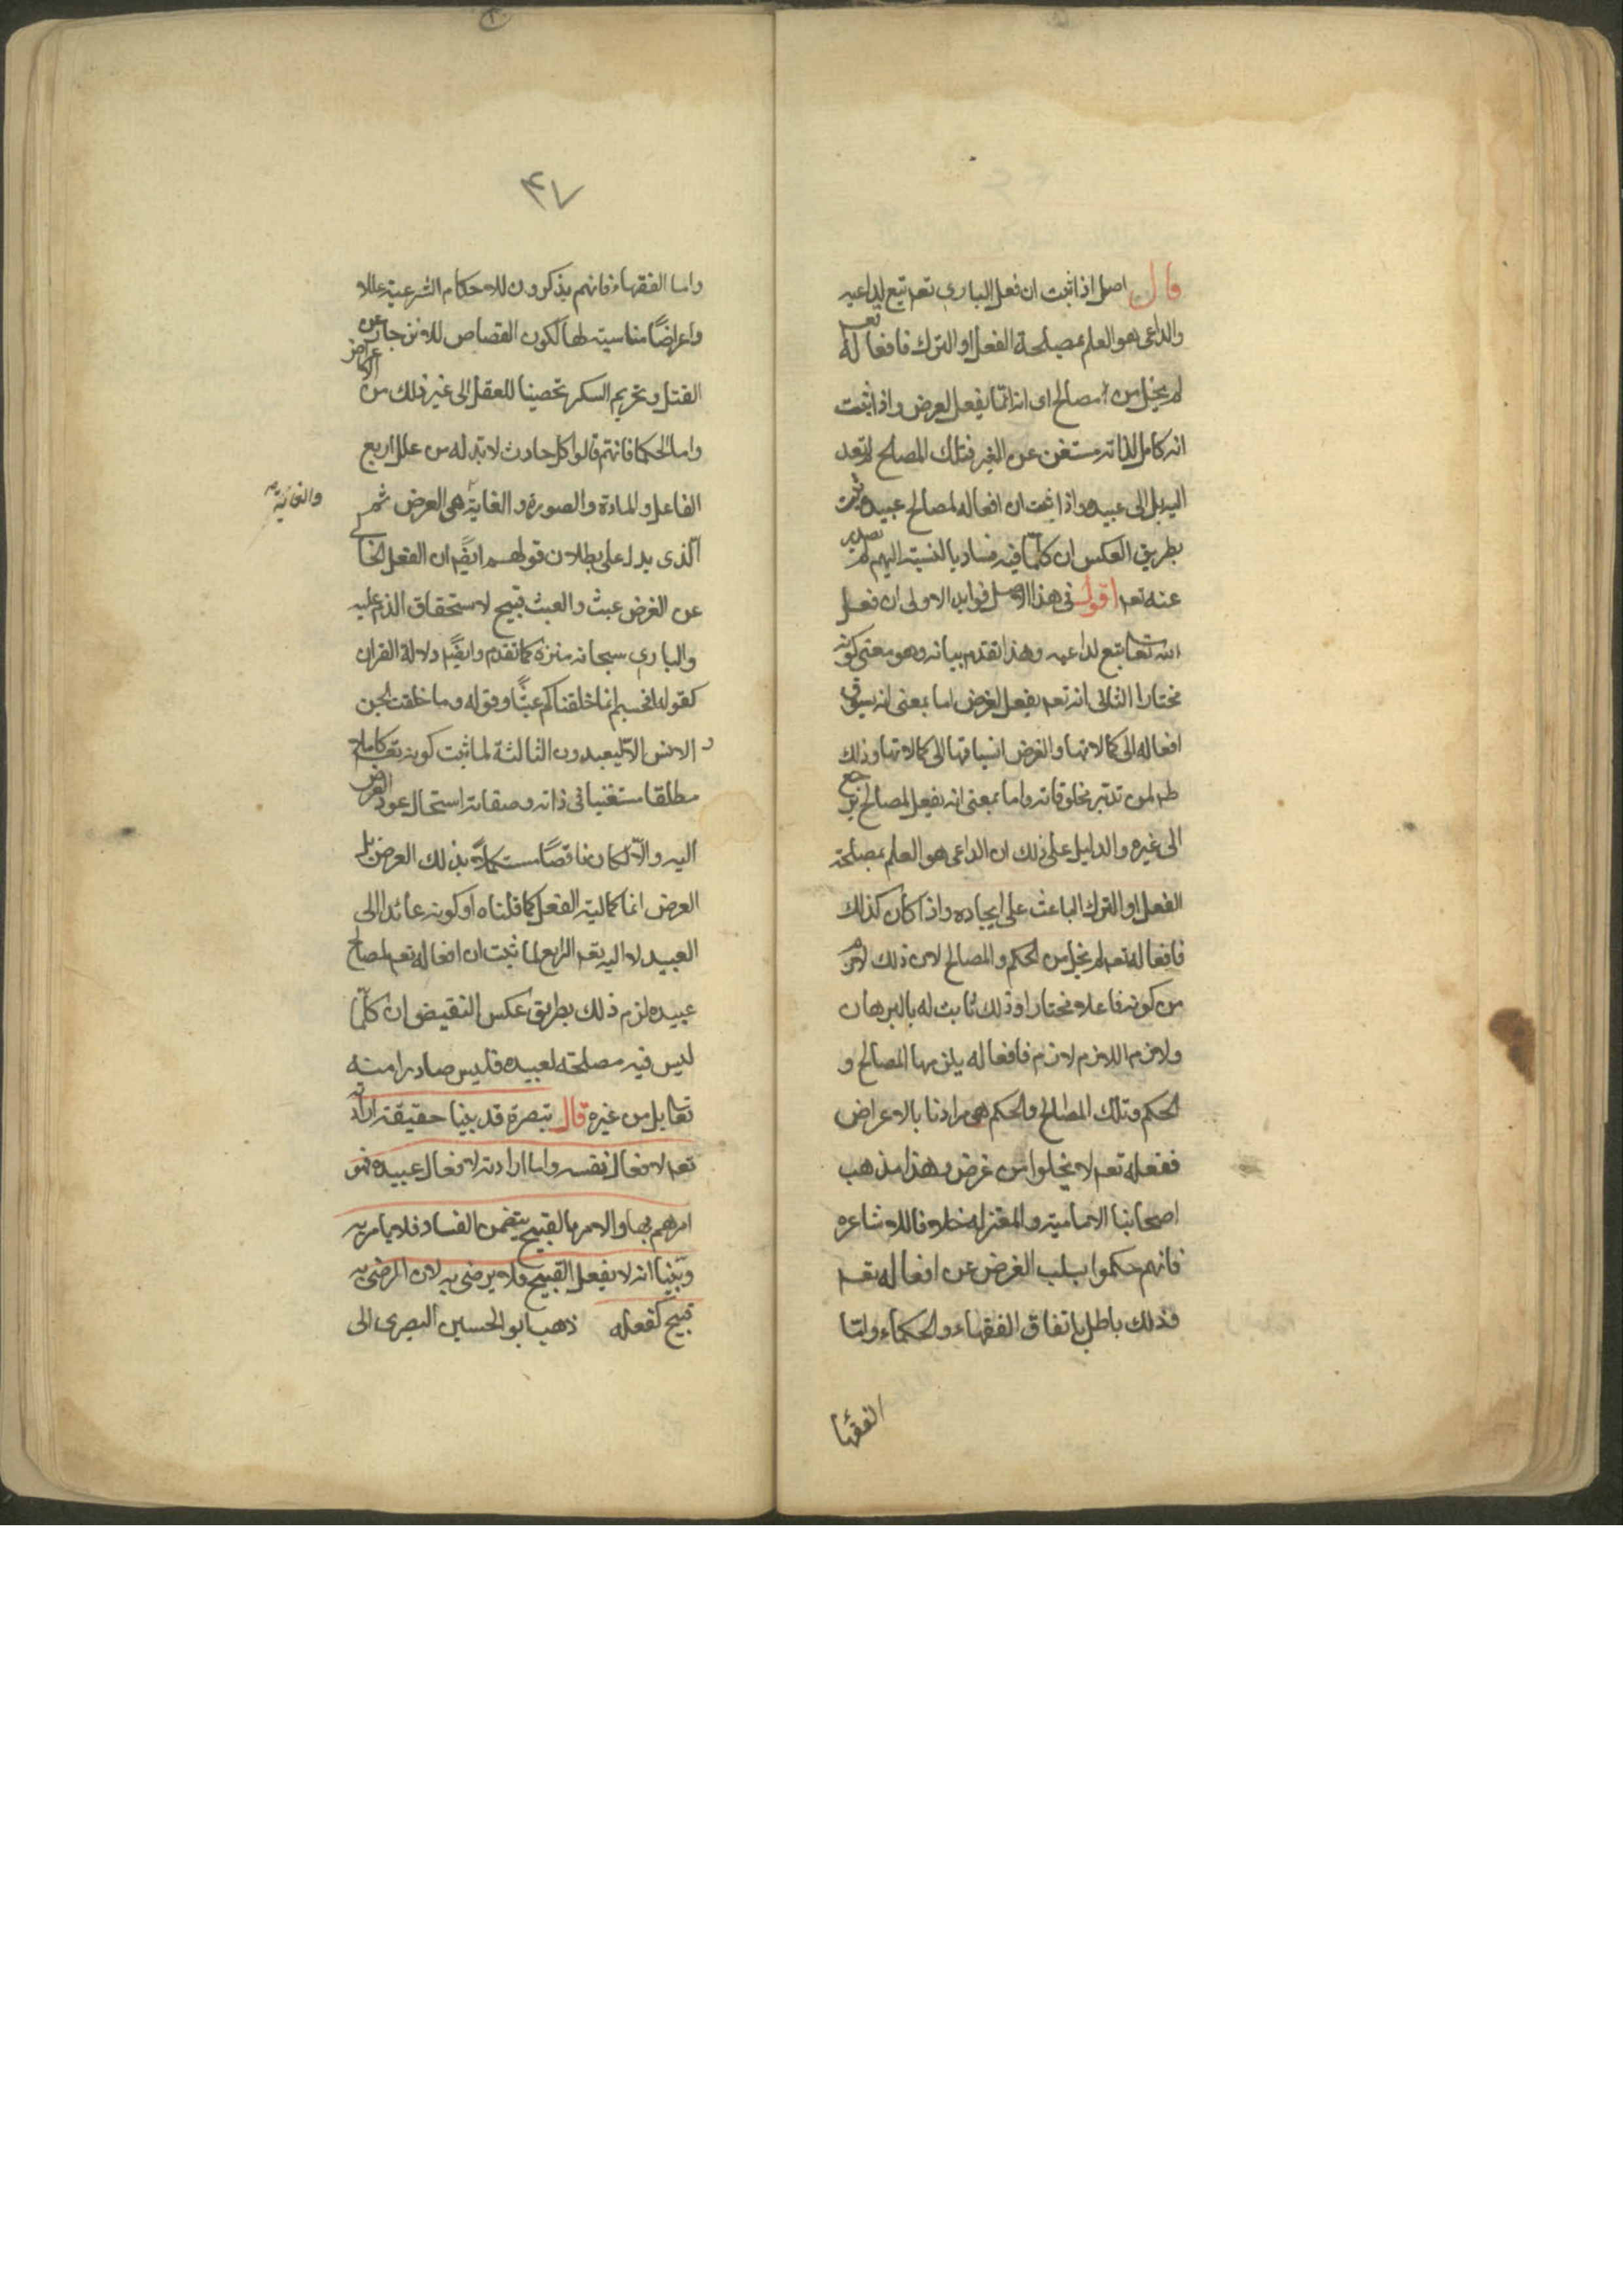 قال اصل اذا ثبت ان فعل الباري تعم تبع لداعيه
والداعى هو العلم بمصلحة الفعل او الترك فافعاله تعم
لم يخل من مصالح اى انه انما يفعل لغرض واذا ثبت
انه كامل لذاته مستغن عن الغير فتلك المصالح لم تعد
اليه بل الى عبيده واذا ثبت ان افعاله لمصالح عبيده ثبت
بطريق العكس ان كلما فيه فساد بالنسبة اليهم لم يصدر
عنه تعم اقول فى هذا الاصل فوايد الاولى ان فعل
الله تعا تبع لداعيه وهذا تقدم بيانه وهو معنى كونه
مختارا الثانى انه تعم يفعل لغرض اما بمعنى انه يسوق
افعاله الى كمالاتها والغرض انسياقها الى كمالاتها وذلك
ظم لمن تدبر مخلوقاته واما بمعنى انه يفعل لمصالح ترجع
الى غيره والدليل على ذلك ان الداعى هو العلم بمصلحة
الفعل او الترك الباعث على ايجاده واذا كان كذلك
فافعاله تعم لم يخل من الحكم والمصالح لان ذلك لازم
من كونه فاعلا مختارا وذلك ثابت له بالبرهان
ولازم اللازم لازم فافعاله يلزمها المصالح و
الحكم وتلك المصالح والحكم هى مرادنا بالاعراض
ففعله تعم لا يخلوا من غرض وهذا مذهب
اصحابنا الامامية والمعتزله خلافا للاشاعره
فانهم حكموا بسلب الغرض عن افعاله تعم
وذلك باطل باتفاق الفقهاء والحكماء واما
الفقها
٤٧
واما الفقهاء فانهم يذكرون للاحكام الشرعية عللا
واعراضًا مناسبة لها ككون القصاص للانزجار عن
القتل وتحريم السكر تحصينا للعقل الى غير ذلك من الاعراض
واما الحكما فانهم قالوا كل حادث لابد له من علل اربع
الفاعل والمادة والصورة والغاية هى الغرض ثم
والغائية
الذى يدل على بطلان قولهم ايضًا ان الفعل الخا
عن الغرض عبث والعبث قبيح لاستحقاق الذم عليه
والباري سبحانه منزه كما تقدم وايضًا دلالة القران
كقوله افحسبتم انما خلقناكم عبثًا وقوله وما خلقت الجن
و الانس الا ليعبدون الثالثة لما ثبت كونه تعم كاملا
مطلقا مستغنيا فى ذاته وصفاته استحال عود الغرض
اليه والا لكان ناقصًا مستكملا بذلك الغرض بل
الغرض انما كمالية الفعل كما قلناه او كونه عائدا الى
العبيد لا اليه تعم الرابع لما ثبت ان افعاله تعم لمصالح
عبيده لزم ذلك بطريق عكس النقيض ان كلما
ليس فيه مصلحة لعبيده فليس صادرا منه
تعا بل من غيره قال تبصرة قد بينا حقيقة ارادته
تعم لافعال نفسه واما ارادته لافعال عبيده فهو
امرهم بها والامر بالقبيح يتضمن الفساد فلا يامر به
وبينا انه لا يفعل القبيح فلا يرضى به لان الرضى به
قبيح كفعله ذهب ابو الحسين البصرى الى